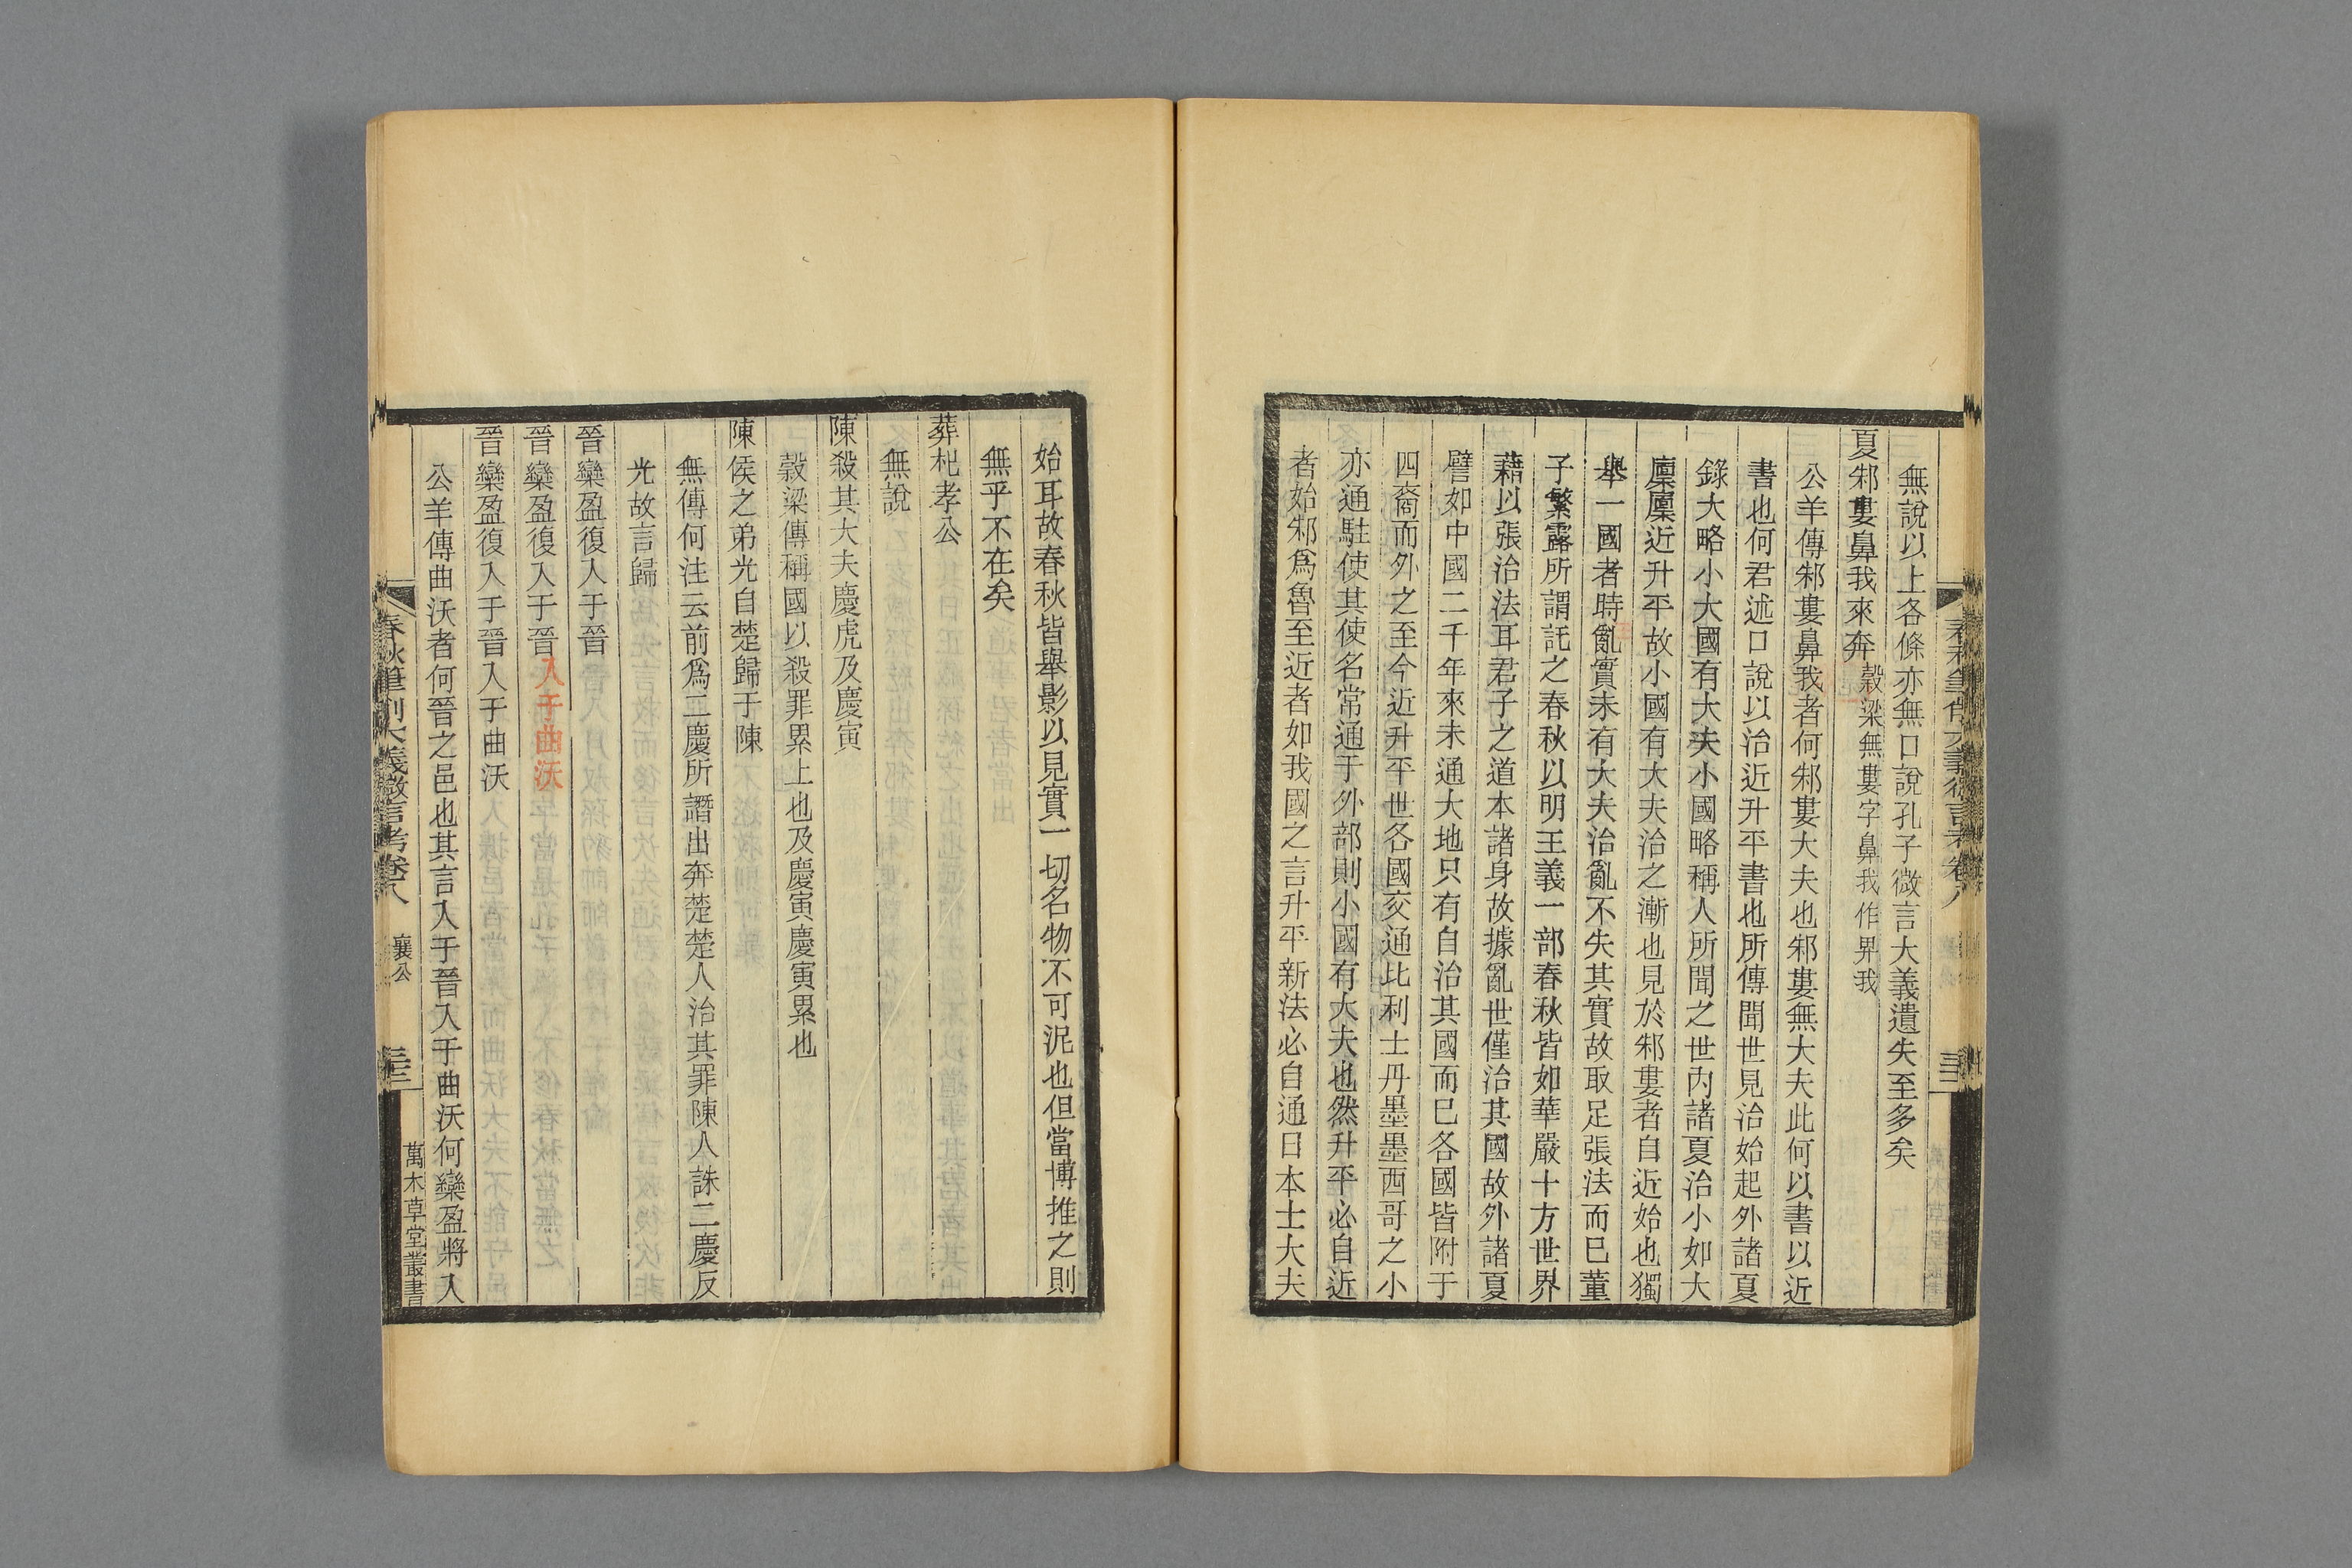 無說以上各條亦無口說孔子微言大義遺失至多矣
夏邾婁鼻我來奔穀梁無婁字鼻我作畀我
公羊傳邾婁鼻我者何邾婁大夫也邾婁無大夫此何以書以近
書也何君述口說以治近升平書也所傳聞世見治始起外諸夏
錄大略小大國有大夫小國略稱人所聞之世內諸夏治小如大
廩廩近升平故小國有大夫治之漸也見於邾婁者自近始也獨
舉一國者時亂實未有大夫治亂不失其實故取足張法而已董
子繁露所謂託之春秋以明王義一部春秋皆如華嚴十方世界
藉以張治法耳君子之道本諸身故據亂世僅治其國故外諸夏
譬如中國二千年來未通大地只有自治其國而已各國皆附于
四裔而外之至今近升平世各國交通比利士丹墨墨西哥之小
亦通駐使其使名常通于外部則小國有大夫也然升平必自近
者始邾爲魯至近者如我國之言升平新法必自通日本士大夫
始耳故春秋皆舉影以見實一切名物不可泥也但當博推之則
無乎不在矣
葬杞孝公
無說
陳殺其大夫慶虎及慶寅
穀梁傳稱國以殺罪累上也及慶寅慶寅累也
陳侯之弟光自楚歸于陳
無傳何注云前爲二慶所譖出奔楚楚人治其罪陳人誅二慶反
光故言歸
晉欒盈復入于晉
晉欒盈復入于晉入于曲沃
晉欒盈復入于晉入于曲沃
公羊傳曲沃者何晉之邑也其言入于晉入于曲沃何欒盈將入
春秋筆削大義微言考卷八 襄公 三三 萬木草堂叢書